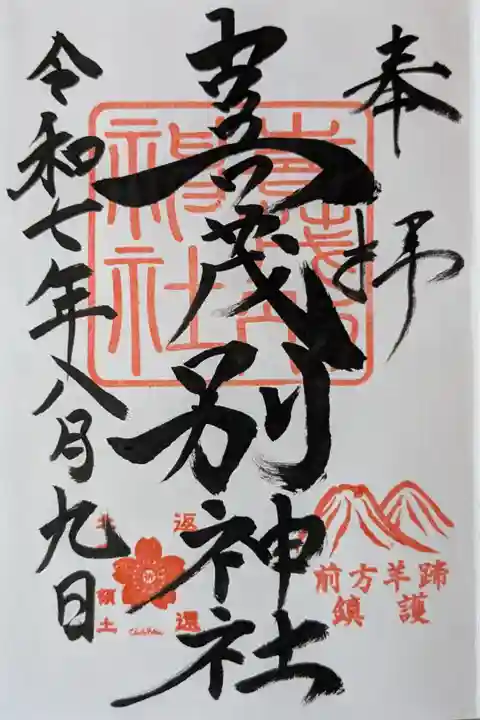 奉拝
喜茂別神社
令和七年八月九日
喜茂別
神社
前方羊蹄
鎮護
返還
領土